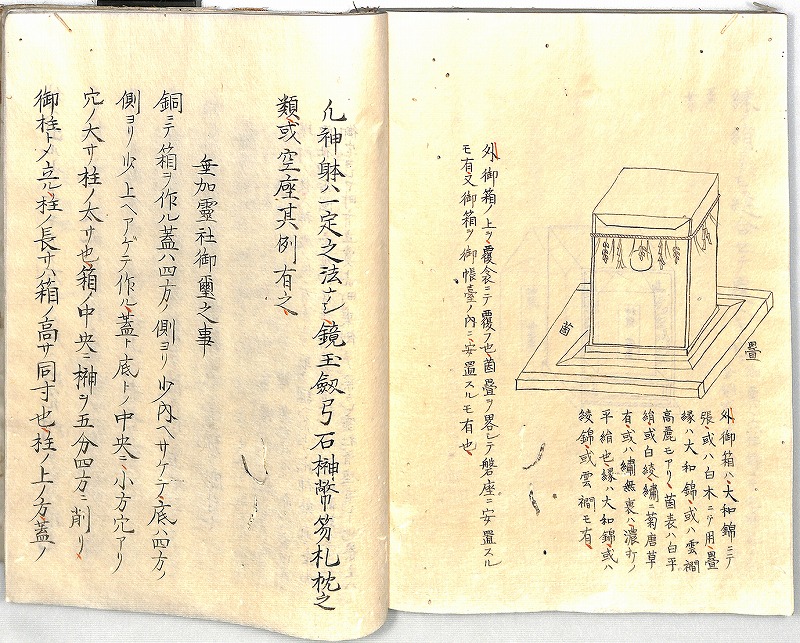 茵
疊
外御箱ハ大和錦ニテ
張或ハ白木ニテ用疊
縁ハ大和錦或ハ雲襉
高麗モアリ茵表ハ白平
絹或白綾繍ニ菊唐草
有或ハ繍無裏ハ濃打ノ
平絹也縁ハ大和錦或ハ
綾錦或雲襉モ有
外御箱ノ上ヲ覆衾ニテ覆フ也茵疊ヲ畧シテ磐座ニ安置スル
モ有又御箱ヲ御帳臺ノ内ニ安置スルモ有也
凢神躰ハ一定之法ナシ鏡玉劔弓石榊幣笏札枕之
類或空座其例有之
垂加靈社御璽之事
銅ニテ箱ヲ作ル蓋ハ四方ノ側ヨリ少内ヘサケテ底ハ四方ノ
側ヨリ少上ヘアゲテ作ル蓋ト底トノ中央ニ小方穴アリ
穴ノ大サ柱ノ太サ也箱ノ中央ニ榊ヲ五分四方ニ削リ
御柱トメ立ル柱ノ長サハ箱ノ高サ同寸也柱ノ上ノ方蓋ノ